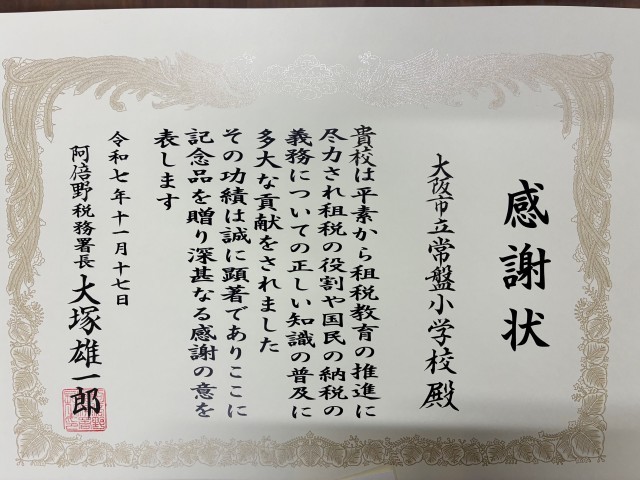 感謝状
大阪市立常盤小学校殿
貴校は平素から租税教育の推進に
尽力され租税の役割や国民の納税の
義務についての正しい知識の普及に
多大な貢献をされました
その功績は誠に顕著でありここに
記念品を贈り深甚なる感謝の意を
表します
令和七年十一月十七日
阿倍野税務署長 大塚雄一郎